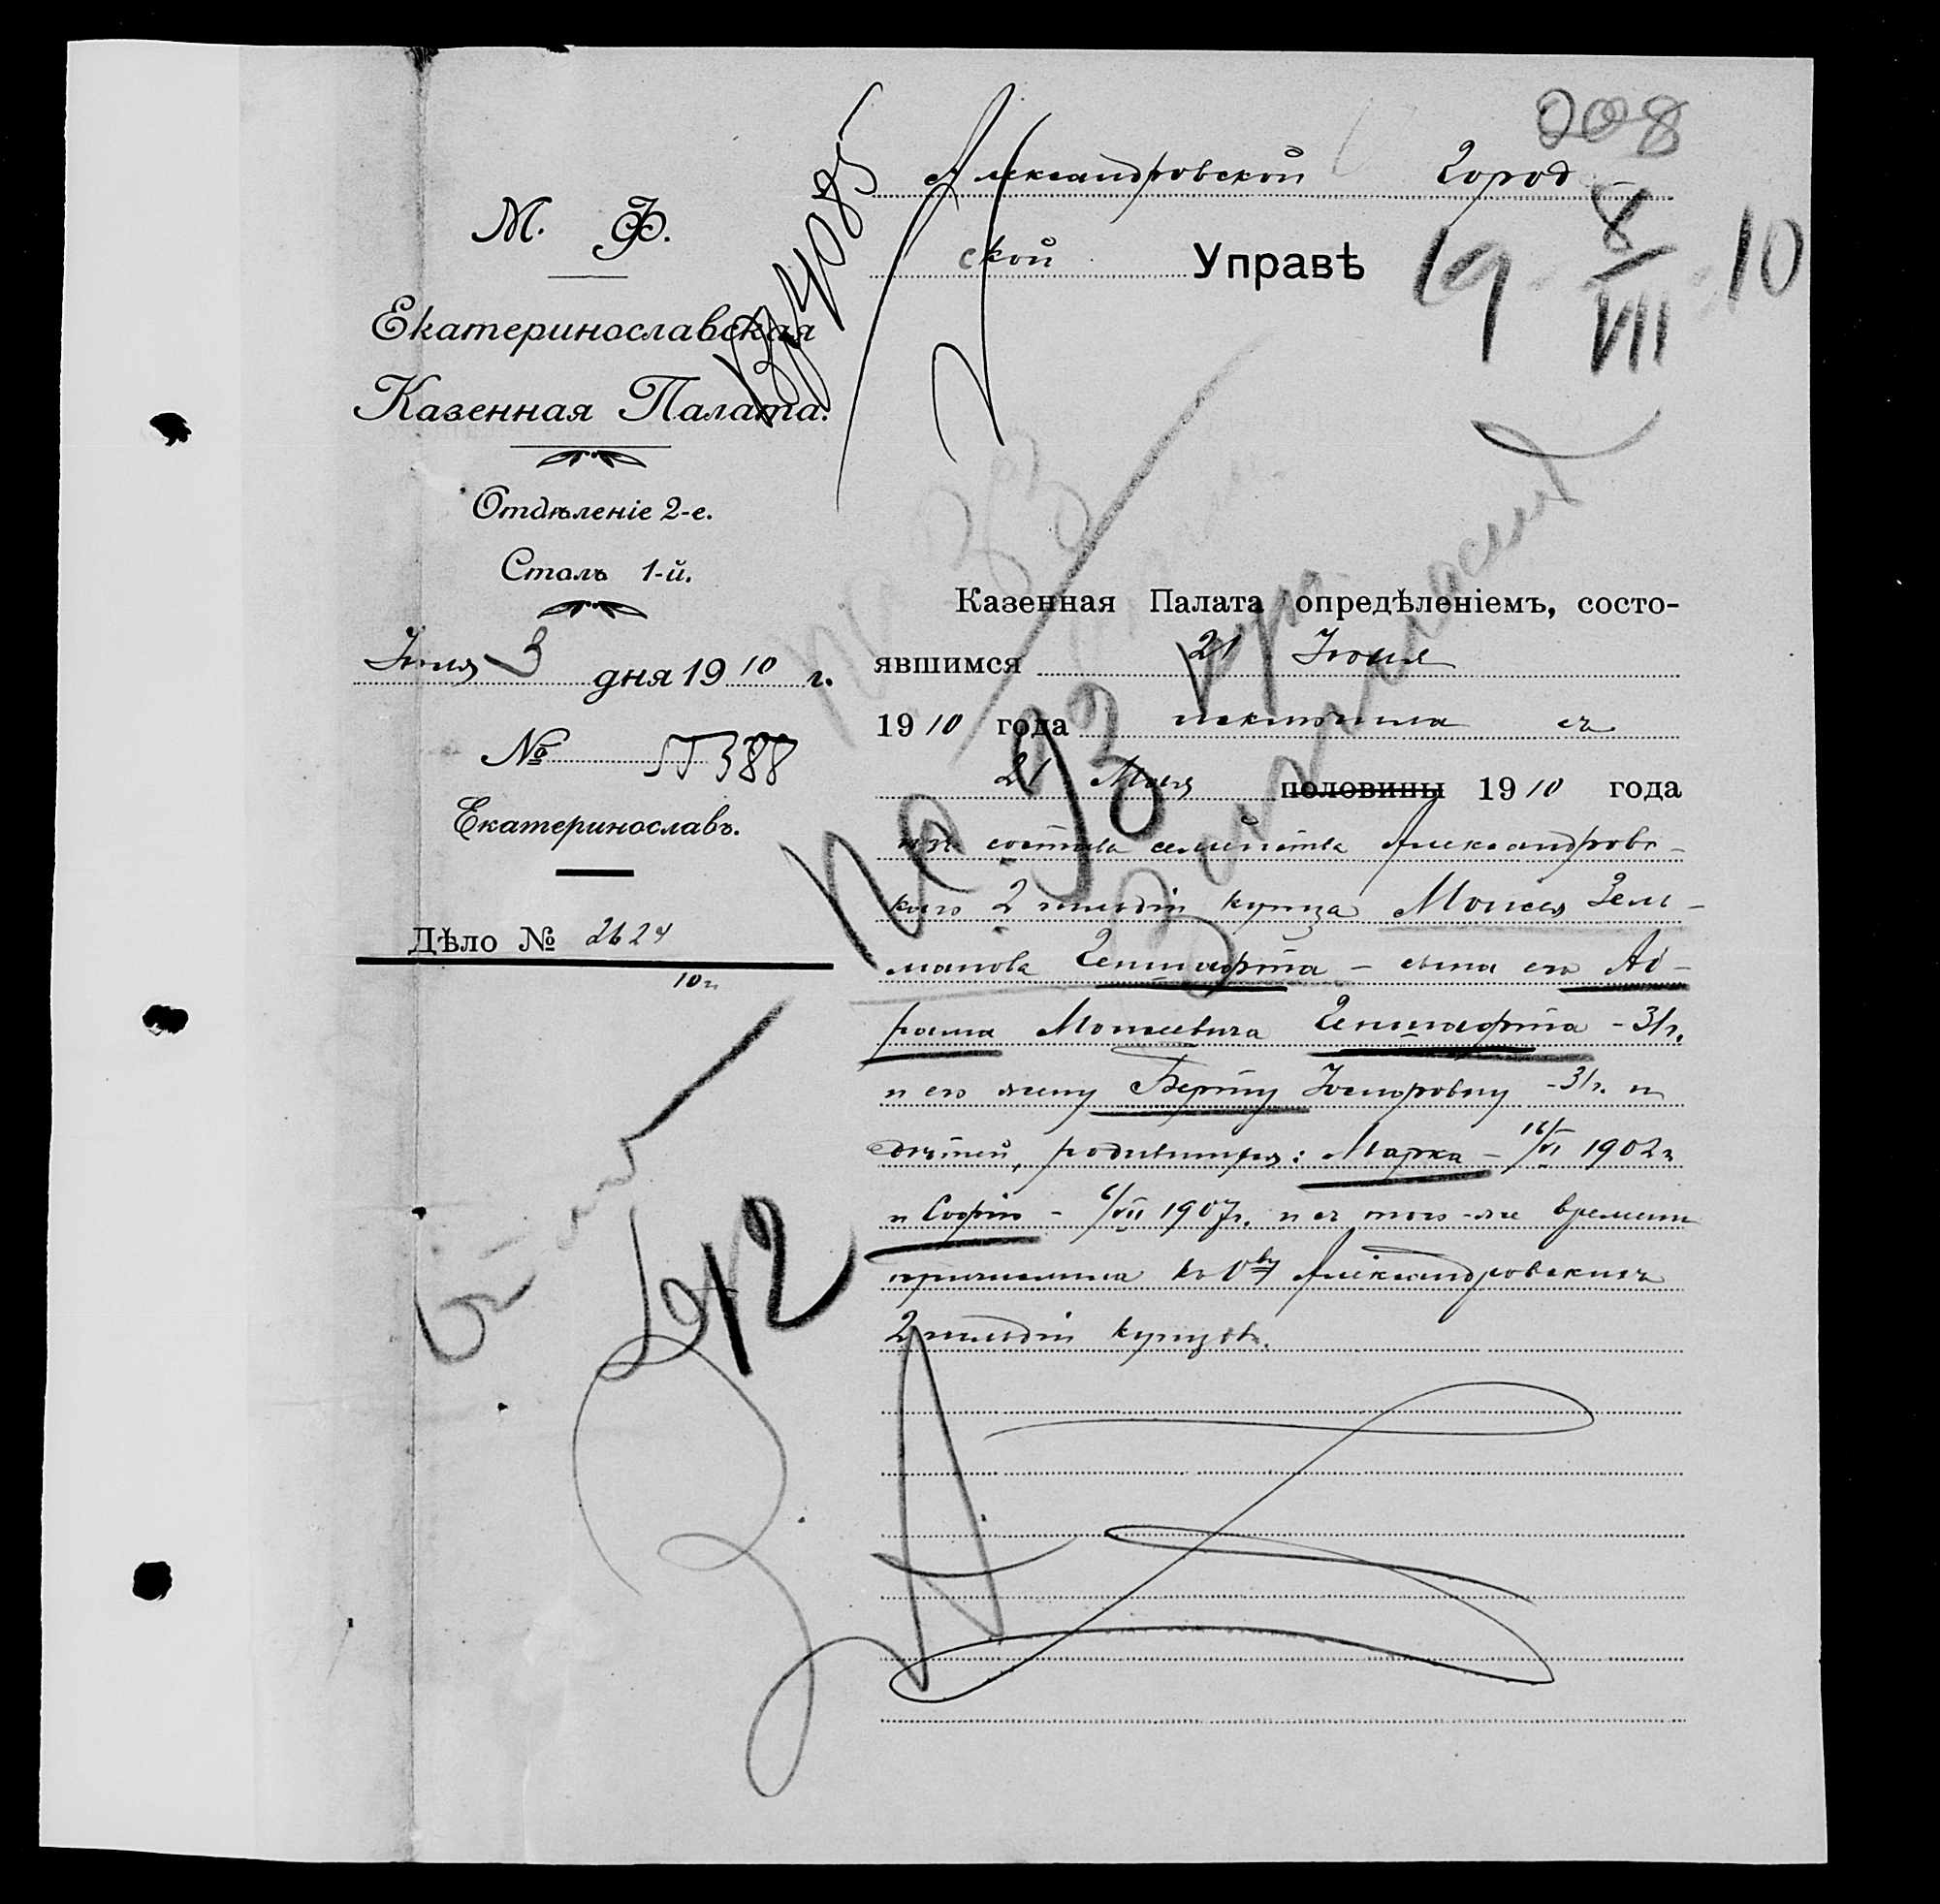 208
Александровской Город
ской Управѣ
19 8/VII 10
М. Ф.
Екатеринославская
Казенная Палата.
Отдѣленіе 2-е.
Столъ 1-й.
Іюля 3 дня 1910 г.
№ 55388
Екатеринославъ.
Дѣло № 2624
10 г.
Казенная Палата опредѣленіемъ, состо-
явшимся 21 Іюня
1910 года исключила съ
21 Мая половины 1910 года
изъ состава семейства Александровс-
каго 2 гильдіи купца Моисея Зель-
манова Геншафта – сына его Аб-
рама Моисеевича Геншафта – 31 г.
и его жену Берту Іосифовну – 31 г. и
дѣтей, родившихся: Марка – 16/VI 1902 г
и Софію – 6/VII 1907 г. и съ того-же времени
причислила къ Александровскихъ
2 гильдіи купцовъ.
по 93
912